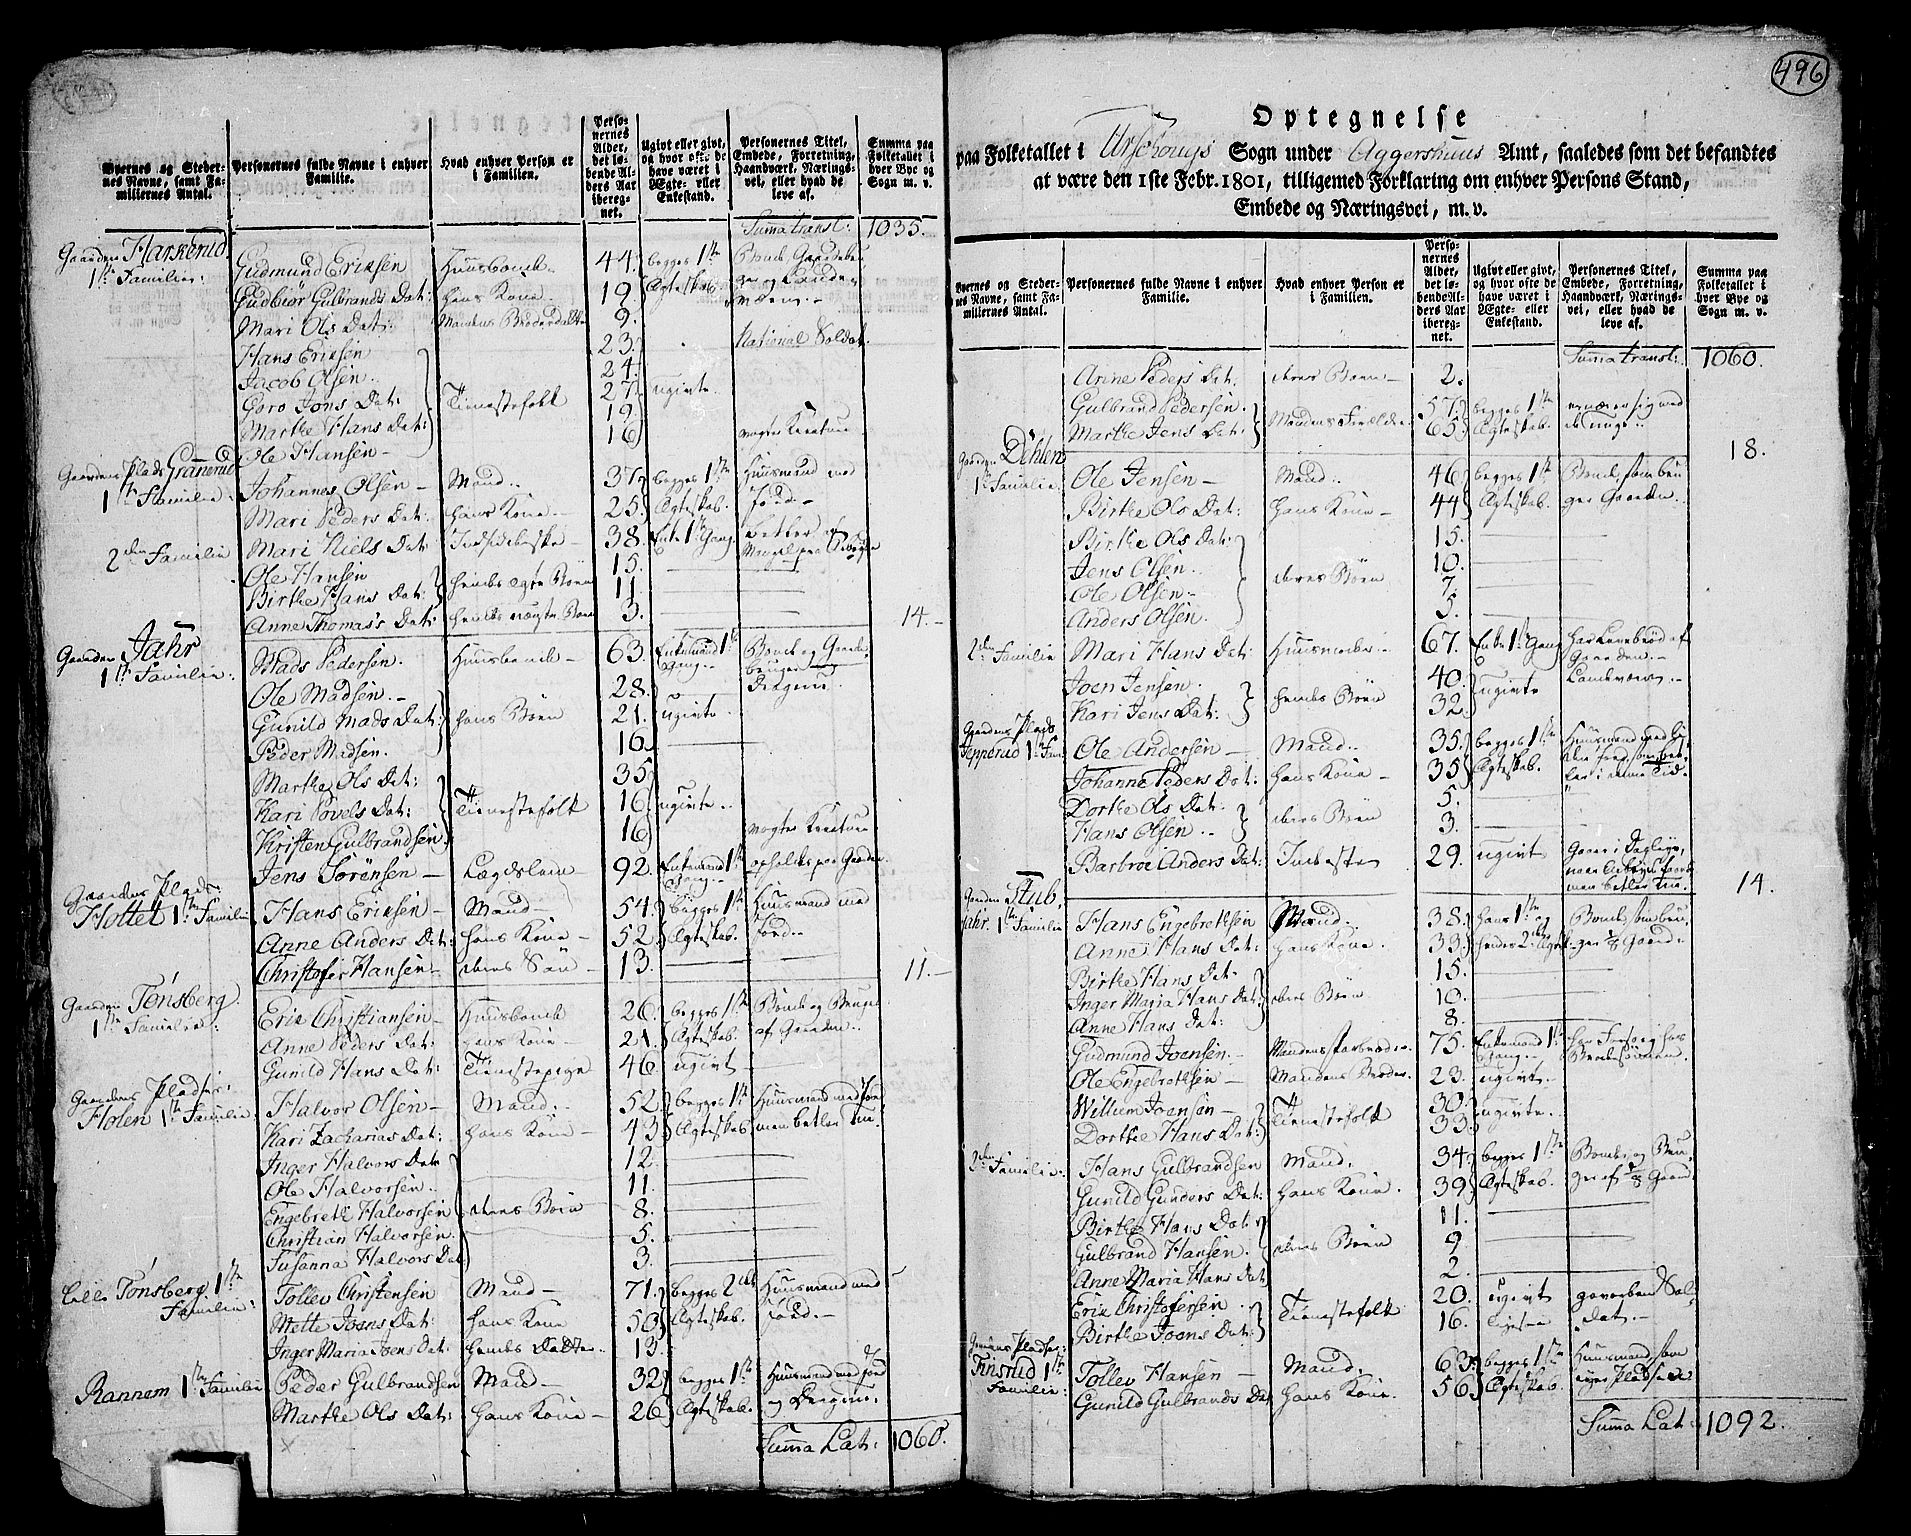 496
Byernes og Stedernes Navne, samt Familiernes Antal.
Personernes fulde Navne i enhver Familie.
Hvad enhver Person er i Familien.
Personernes Alder, det løbende Alders Aar iberegnet.
Ugivt eller givt, og hvor ofte de have været i Ægte- eller Enkestand.
Personernes Titel, Embede, Forretning, Haandværk, Næringsvei, eller hvad de leve af.
Summa paa Folketallet i hver Bye og Sogn m. v.
Suma transt: 1035.
Gaarden Harkerud
1ste Familie: Gudmund Eriksen Huusbonde 44 begges 1ste Ægteskab Bonde Gaardebruger og Lændsmænd
Gudbiør Gulbrands Dat: hans Kone 19
Mari Ols Dat: Mandens Broderdatter 9.
Hans Eriksen 23 National Soldat.
Jacob Olsen 24
Goro Jons Dat: Tienestefolk 27 ugivte
Marthe Hans Dat: 19
Ole Hansen 16 vogter Kreature
Gaardens Plads Granerud
1ste Familie: Johannes Olsen Mand 37 begges 1ste Huusmand med
Mari Peders Dat: hans Kone 25 Ægteskab. Jord
2den Familie Mari Niels Dat: Indsidderske 38. Enke 1ste Gang betler
Ole Hansen 15.
Birthe Hans Dat: hendes ægte Børn 11
Anne Thomas's Dat: hendes uægte Barn 3. 14.
Gaarden Jahr
1ste Familie: Mads Pedersen. Huusbonde 63. Enkemand 1ste Gang Bonde og Gaardebruger
Ole Madsen 28
Gunild Mads Dat: hans Børn 21. ugivte
Peder Madsen. 16
Marthe Ols Dat: 35
Kari Povels Dat: Tienestefolk 16 ugivte
Kristen Gulbrandsen 16 vogter Kreature
Jens Sørensen Lægdslem 92. Enkemand 1ste Gang opholdes paa Gaarden
Gaardens Plads:
Holtet 1ste Familie Hans Eriksen Mand 54. begges 1ste Huusmand med
Anne Anders Dat: hans Kone 52 Ægteskab. Jord
Christofer Hansen deres Søn 13. 11.
Gaarden Tønsberg.
1ste Familie: Erik Christiansen Huusbonde 26. begges 1ste Bonde og Bruger
Anne Peders Dat: hans Kone 21. Ægteskab. af Gaarden
Gunild Hans Dat: Tienestepige 46 ugivt
Gaardens Pladser:
Holen 1ste Familie: Halvor Olsen Mand 52 begges 1ste Huusmand med Jord
Kari Zacharias Dat: hans Kone 43 Ægteskab men betler
Inger Halvors Dat: 12.
Ole Halvorsen 11.
Engebreth Halvorsen deres Børn 8.
Christian Halvorsen 5.
Susanna Halvors Dat 3.
Lille Tønsberg 1ste Familie: Tollev Christensen Mand 71. begges 2det Huusmand med
Mette Joens Dat: hans Kone 50 Ægteskab. Jord.
Inger Maria Joens Dat: hendes Datter 13.
Rannem 1ste Familie Peder Gulbrandsen Mand 32 begges 1ste Huusmand med Jord
Marthe Ols Dat: hans Kone 26 Ægteskab.
Suma Lat: 1060.
Optegnelse
paa Folketallet i Urschougs Sogn under Aggershuus Amt, saaledes som det befandtes
at være den 1ste Febr. 1801, tilligemed Forklaring om enhver Persons Stand,
Embede og Næringsvei, m. v.
Byernes og Stedernes Navne, samt Familiernes Antal.
Personernes fulde Navne i enhver Familie.
Hvad enhver Person er i Familien.
Personernes Alder, det løbende Alders Aar iberegnet.
Ugivt eller givt, og hvor ofte de have været i Ægte- eller Enkestand.
Personernes Titel, Embede, Forretning, Haandværk, Næringsvei, eller hvad de leve af.
Summa paa Folketallet i hver Bye og Sogn m. v.
Suma transt: 1060.
Anne Peders Dat: deres Børn 2.
Gulbrand Pedersen. 57 begges 1ste ernærer sig med
Marthe Jens Dat: Mandens Forældre 65 Ægteskab. 18.
Gaarden Dehlen
1ste Familie. Ole Jensen Mand 46 begges 1ste Bonde, som bru
Birthe Ols Dat: hans Kone 44 Ægteskab. ger Gaarden
Birthe Ols Dat: 15.
Jens Olsen. 10.
Ole Olsen deres Børn 7.
Anders Olsen. 5.
2den Familie Mari Hans Dat: Huusmoder 67. Enke 1ste Gang har Levebrød af Gaarden
Joen Jensen. 40. ugivte
Kari Jens Dat: hendes Børn 32
Gaardens Plads
Jepperud 1ste Fam: Ole Andersen Mand 35. begges 1ste
Johanna Peders Dat: hans Kone 35 Ægteskab.
Dorthe Ols Dat: 5.
Hans Olsen deres Børn 3.
Barbroe Anders Dat: Inderste 29. ugivt 14.
Gaarden Stub
jahr. 1ste Familie Hans Engebrethsen Mand. 38. hans 1ste og Bonde, som bru
Anne Hans Dat: hans Kone. 33 hendes 2det Ægtesk. ger ½ Gaard.
Birthe Hans Dat 15.
Inger Maria Hans Dat: deres Børn 10.
Anne Hans Dat: 8.
Gudmund Joensen. 75. Enkemand 1ste Gang
Ole Engebrethsen Mandens Broder 23. ugivt
Willum Joensen 30. ugivte
Dorthe Hans Dat: Tienestefolk 33.
2den Familie. Hans Gulbrandsen Mand. 34. begges 1ste Bonde og Bru
Gunild Gunders Dat: hans Kone. 39 Ægteskab. ger af ½ Gaard
Birthe Hans Dat: 11.
Gulbrand Hansen. deres Børn 9
Anne Maria Hans Dat 2.
Erik Christofersen Tienestefolk 20. ugivt gevorben Sol
Birthe Joens Dat: 16. dat.
Gaardens Pladser:
Finsrud 1ste Familie: Tollev Hansen Mand. 63. begges 1ste Huusmand som
Gunild Gulbrands Dat hans Kone 56 Ægteskab.
Suma Lat: 1092.